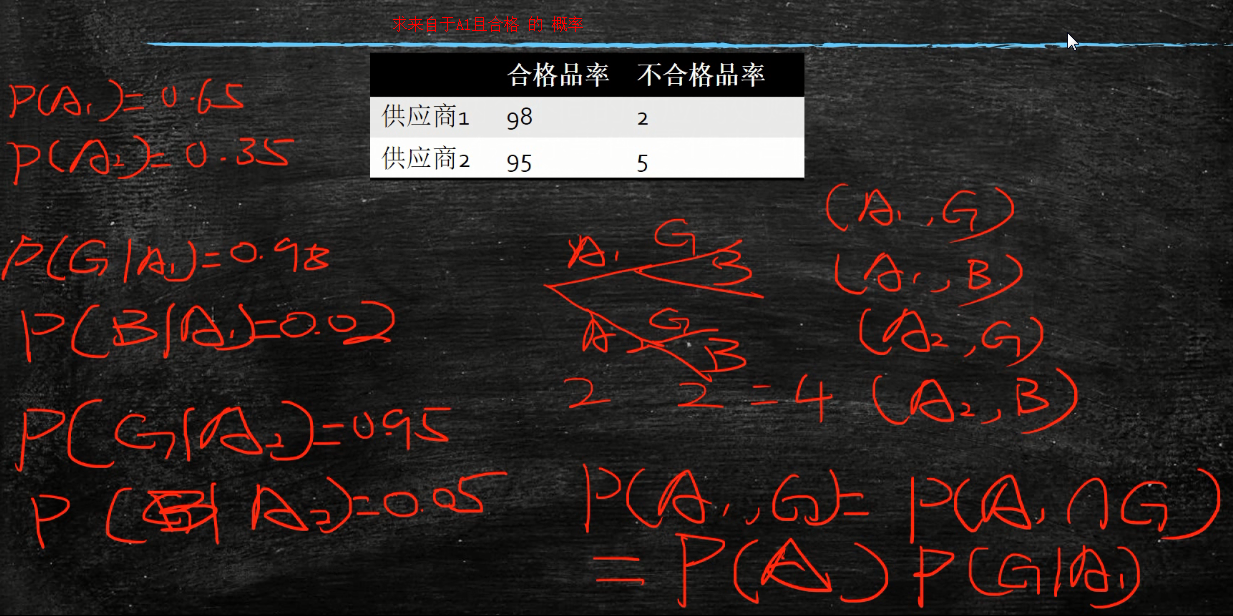 求来自于A1且合格 的 概率
合格品率 不合格品率
供应商1 98 2
供应商2 95 5
P(A₁)=0.65
P(A₂)=0.35
P(G|A₁)=0.98
P(B|A₁)=0.02
P(G|A₂)=0.95
P(B|A₂)=0.05
A₁ G B
A G B
2 2 =4
(A₁,G)
(A₁,B)
(A₂,G)
(A₂,B)
P(A₁,G)=P(A₁∩G)
=P(A₁)P(G|A₁)